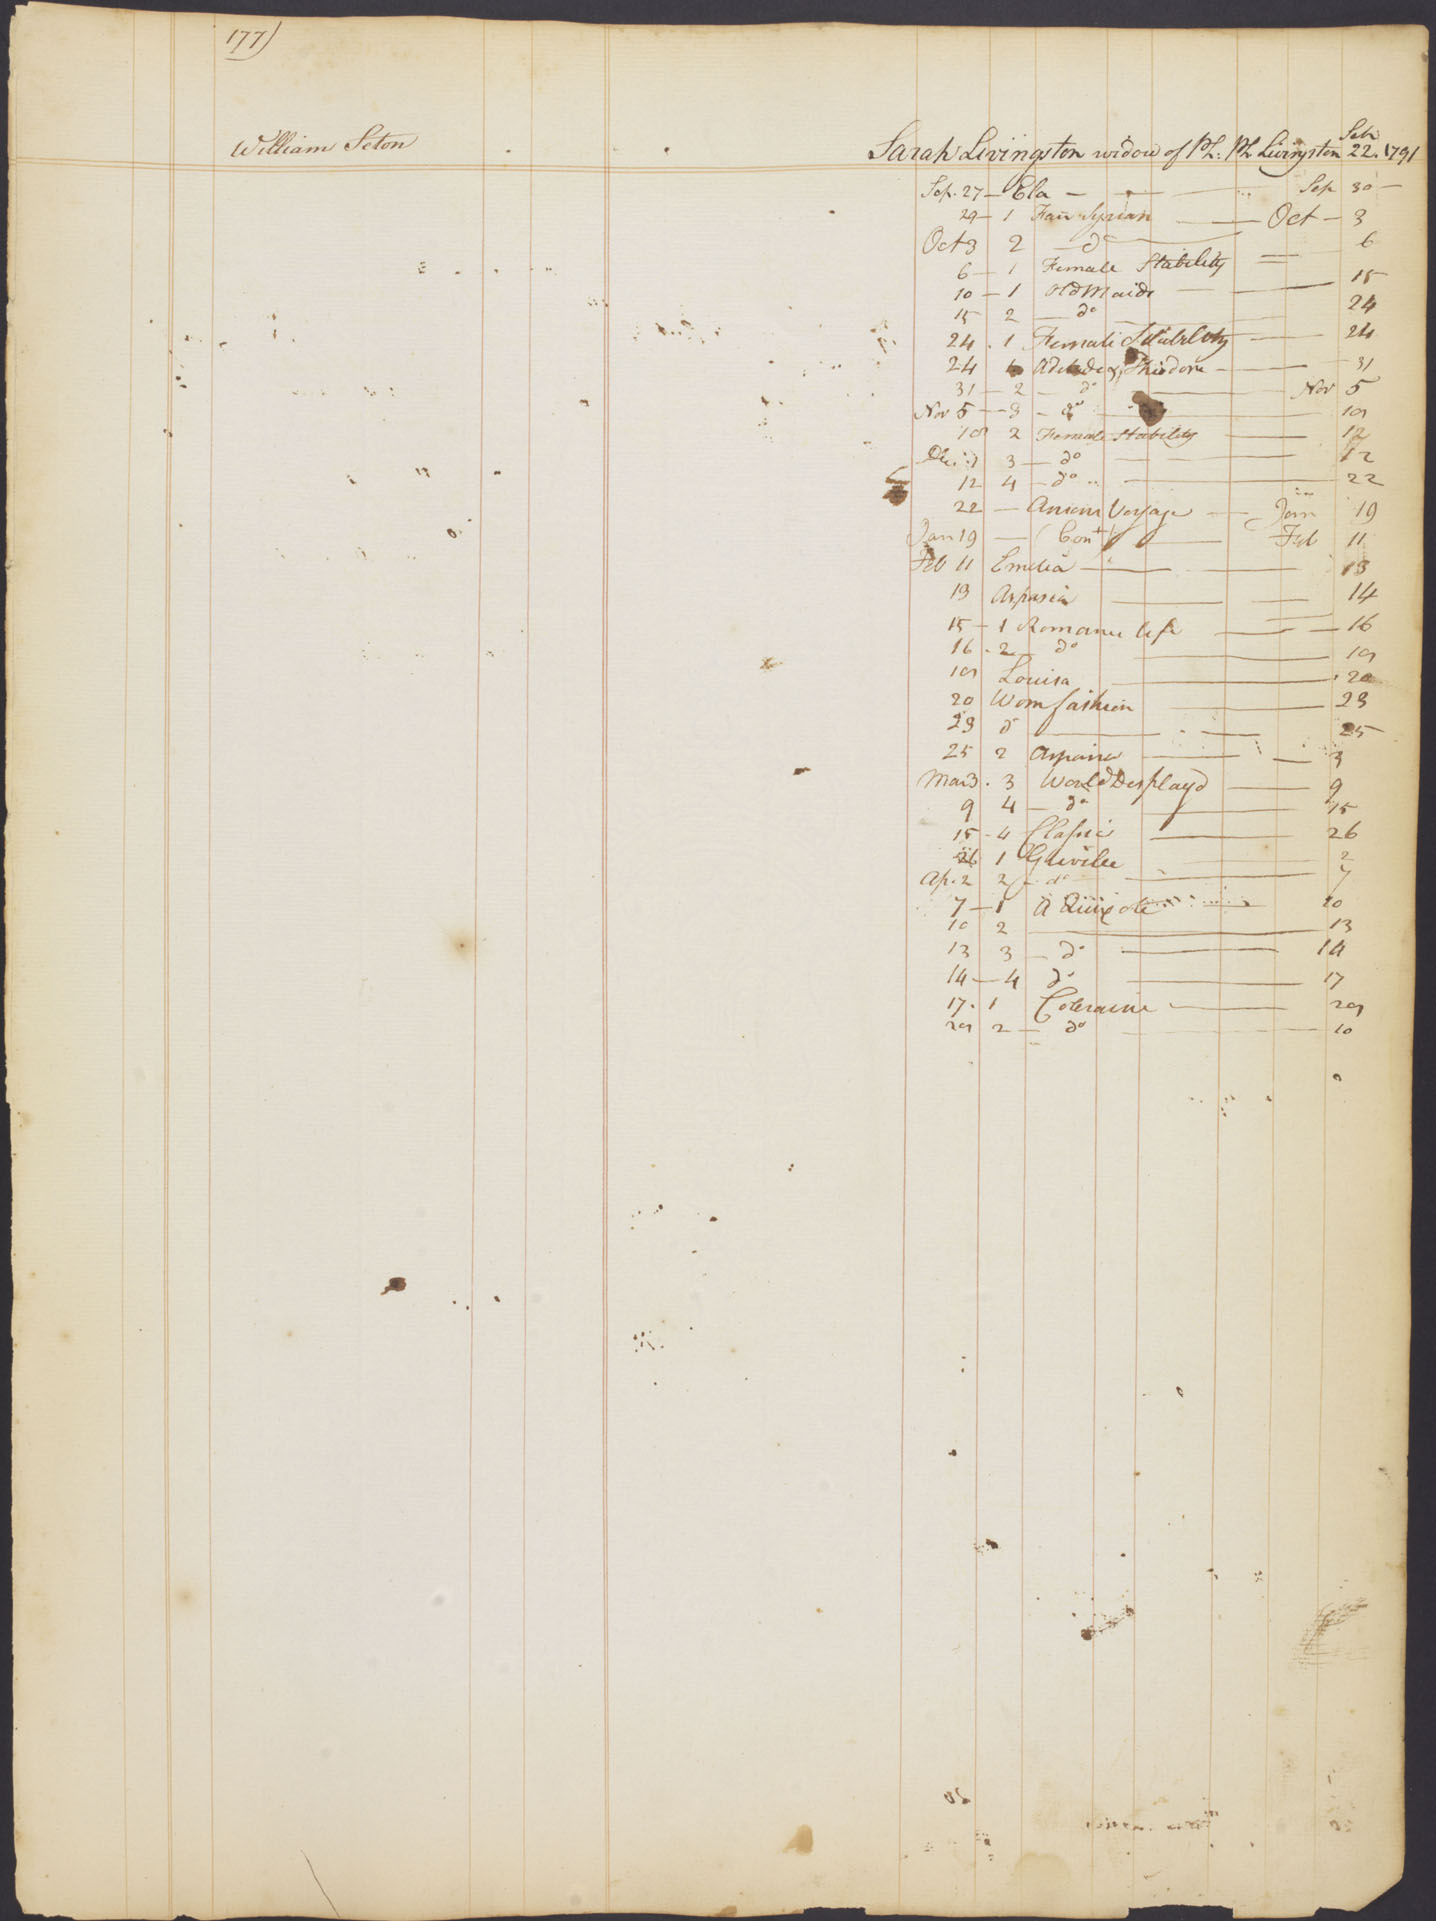 177)
William Seton
Sarah Livingston widow of Ph. Ph Livingston Sep 22. 1791
Sep. 27 — Ela — Sep 30 —
29 — 1 Fair Syrian — Oct — 3
Oct 3 2 — do — 6
6 — 1 Female Stability —
10 — 1 Old Maids — 15
15 2 — do — 24
24 . 1 Female Stability — 24
24 Adelaide & Theodore — 31
31 — 2 — do — Nov 5
Nov 5 — 3 — do — 10
10 2 Female Stability — 12
3 — do — 12
12 4 — do — 22
22 — Ansons Voyage — Jan 19
Jan 19 — (Cont) — Feb 11
Feb 11 Emelia — 13
13 Aspasia — 14
15 — 1 Romance life — 16
16 . 2 — do — 19
19 Louisa — 20
20 Wom fashion — 23
23 do — 25
25 2 Aspasia — 3
Mar 3 . 3 World Displayd — 9
9 4 — do — 15
15 - 4 Classics — 26
26 1 Greville — 2
Ap. 2 2 — do — 7
7 — 1 A Quixote — 10
10 2 — 13
13 3 — do — 14
14 — 4 do — 17
17 . 1 Coleraine — 29
29 2 — do — 10